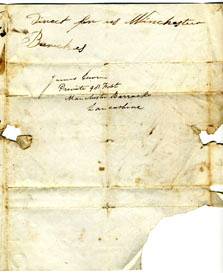 Direct for us Winchester
Barracks
James
Private 98 Foot
Manchester Barracks
Lancashire